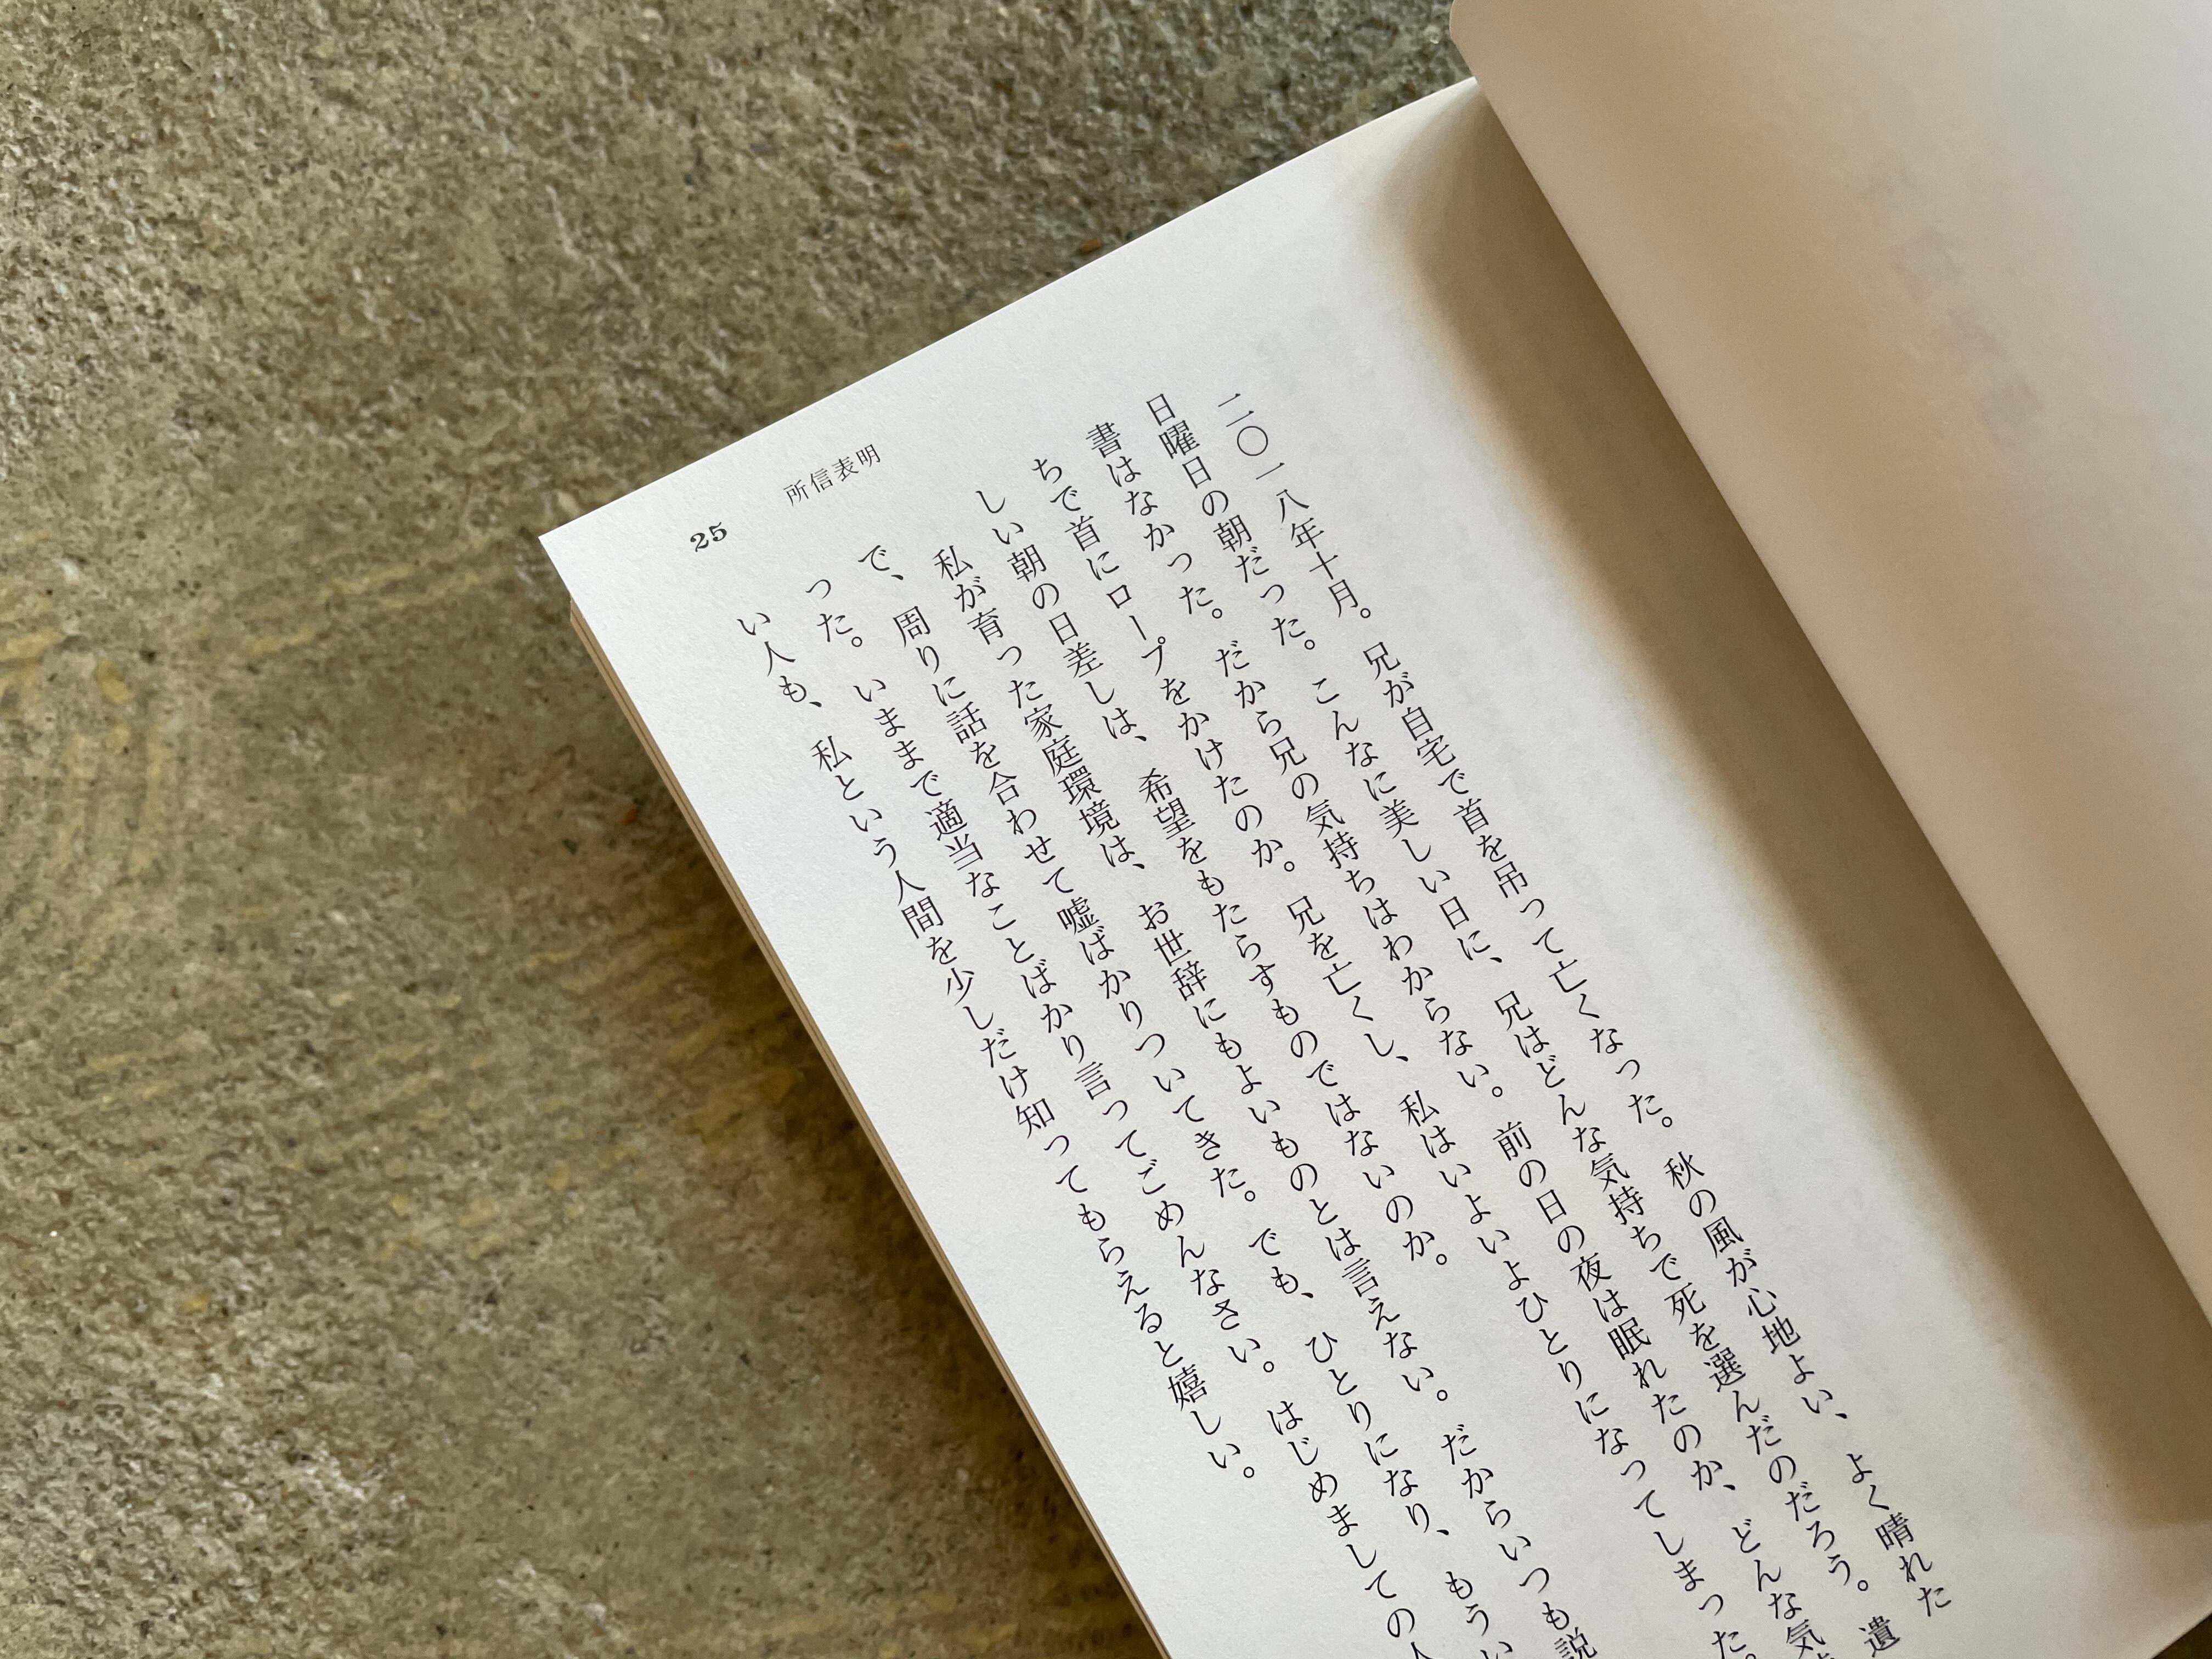 二〇一八年十月。兄が自宅で首を吊って亡くなった。秋の風が心地よい、よく晴れた
日曜日の朝だった。こんなに美しい日に、兄はどんな気持ちで死を選んだのだろう。遺
書はなかった。だから兄の気持ちはわからない。前の日の夜は眠れたのか、どんな気
ちで首にロープをかけたのか。兄を亡くし、私はいよいよひとりになってしまった。
しい朝の日差しは、希望をもたらすものではないのか。
私が育った家庭環境は、お世辞にもよいものとは言えない。だからいつも説
で、周りに話を合わせて嘘ばかりついてきた。でも、ひとりになり、もうい
った。いままで適当なことばかり言ってごめんなさい。はじめましての
い人も、私という人間を少しだけ知ってもらえると嬉しい。
所信表明
25